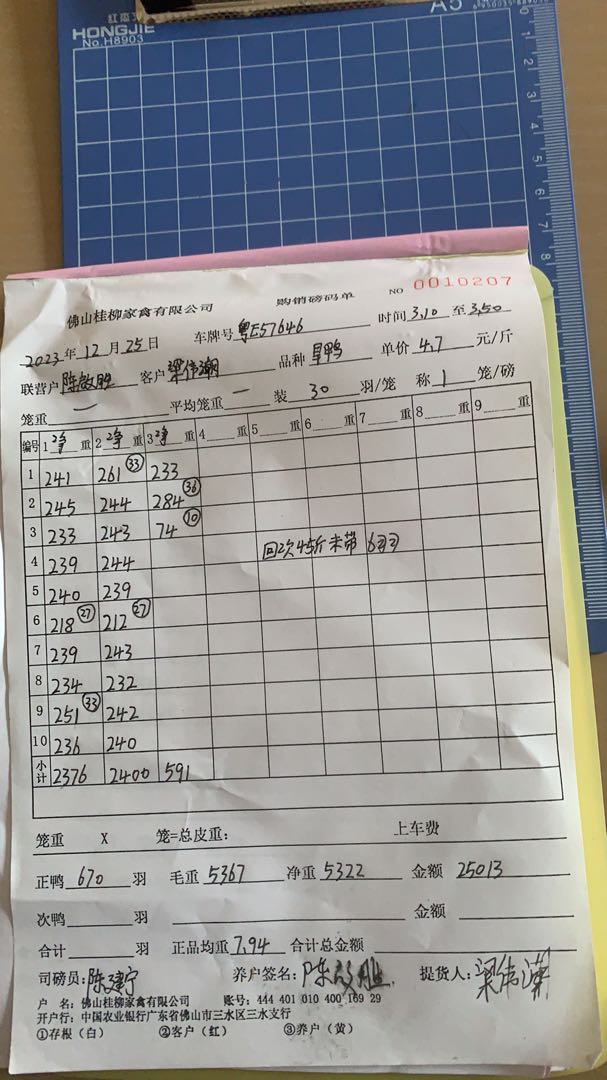 红杰
HONGJIE
No.H8903
A5
0 1 2 3 4 5 6 7 8
佛山桂柳家禽有限公司 购销磅码单 NO 0010207
2023年12月25日 车牌号 粤E57646 时间 3.10 至 3.50
联营户 陈啟胜 客户 梁伟潮 品种 旱鸭 单价 4.7 元/斤
笼重 — 平均笼重 — 装 30 羽/笼 称 1 笼/磅
编号 1 净 重 2 净 重 3 净 重 4 重 5 重 6 重 7 重 8 重 9 重
1 241 261 33 233
2 245 244 284 36
3 233 243 74 10
4 239 244 回次4斤未带 6羽
5 240 239
6 218 27 212 27
7 239 243
8 234 232
9 251 33 242
10 236 240
小计 2376 2400 591
笼重 X 笼=总皮重: 上车费
正鸭 670 羽 毛重 5367 净重 5322 金额 25013
次鸭 羽 金额
合计 羽 正品均重 7.94 合计总金额
司磅员: 陈建宁 养户签名: 陈啟胜 提货人: 梁伟潮
户 名: 佛山桂柳家禽有限公司 账号: 444 401 010 400 169 29
开户行: 中国农业银行广东省佛山市三水区三水支行
①存根(白) ②客户(红) ③养户(黄)